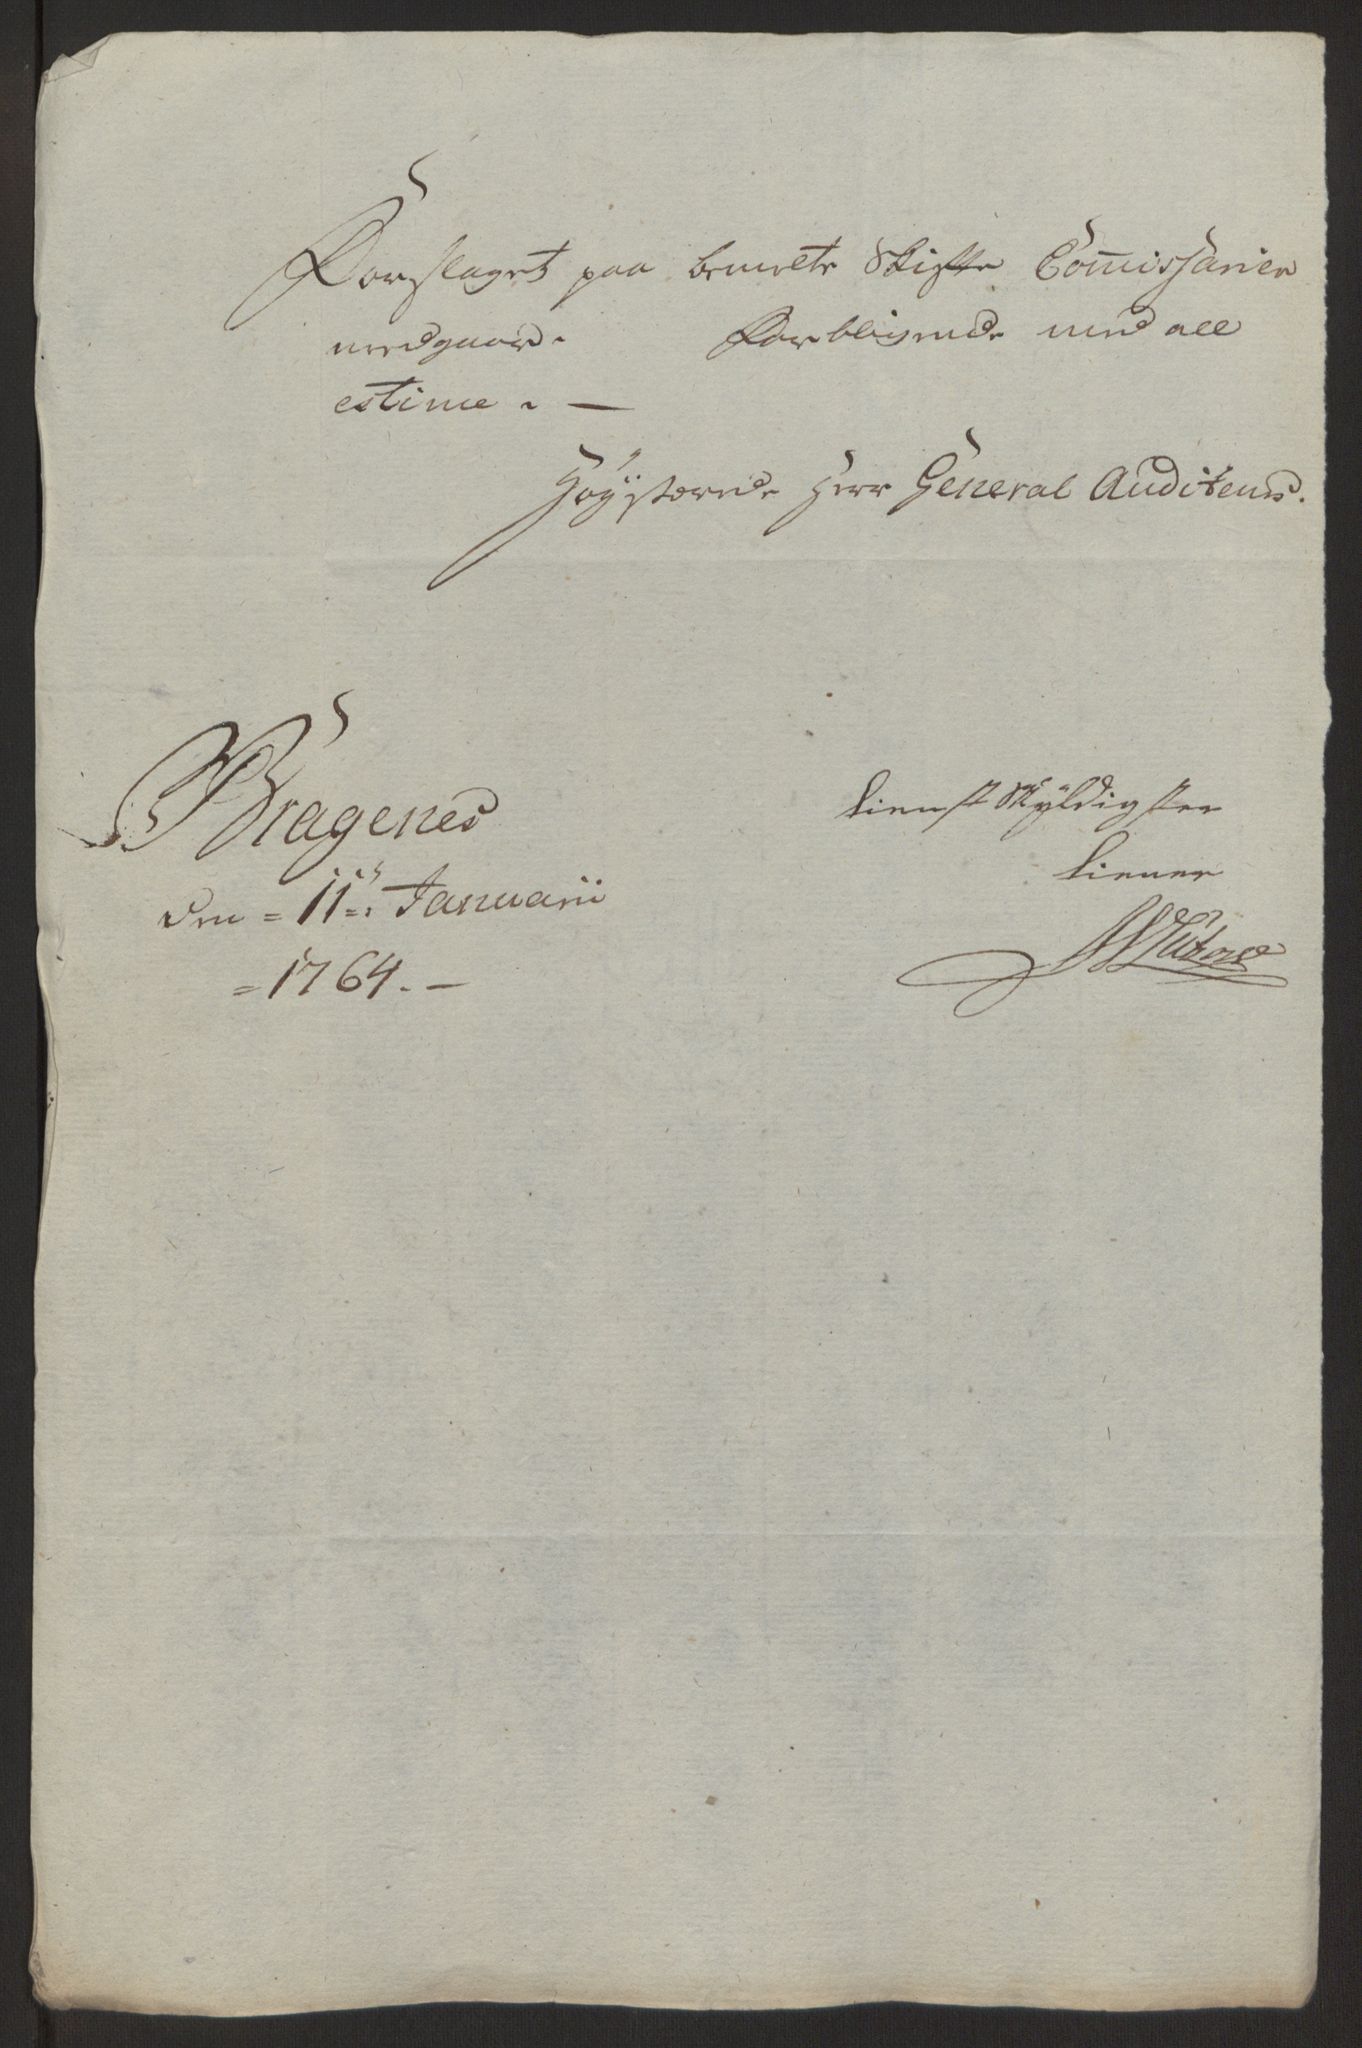 Forslaget paa bemelte Skifte Commissarier
medgaar. Forblivende med all
estime. —
Høÿstærede Herr General Auditeur.
Bragenes
den = 11te Januarii
= 1764. —
tienst Skÿldigster
tiener